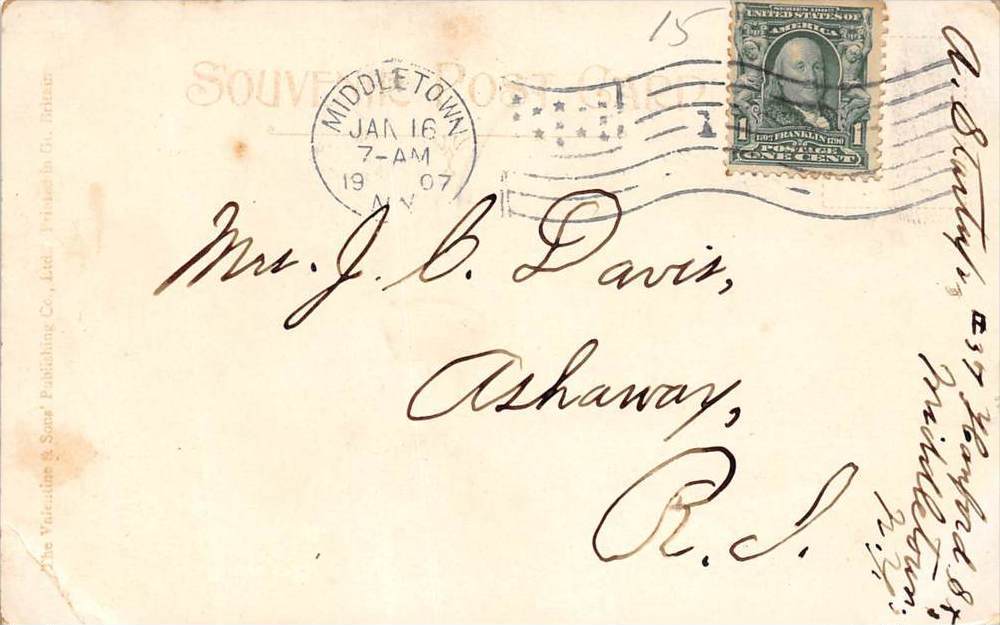 15
SERIES 1902
UNITED STATES OF
AMERICA
1 1
1706 FRANKLIN 1790
POSTAGE
ONE CENT
SOUVENIR POST CARD
MIDDLETOWN
JAN 16
7-AM
19 07
N.Y.
Mrs. J. C. Davis,
Ashaway,
R. I.
A.
#37 Hanford St.,
Middletown,
N.Y.
The Valentine & Sons' Publishing Co., Ltd. Printed in Gt. Britain